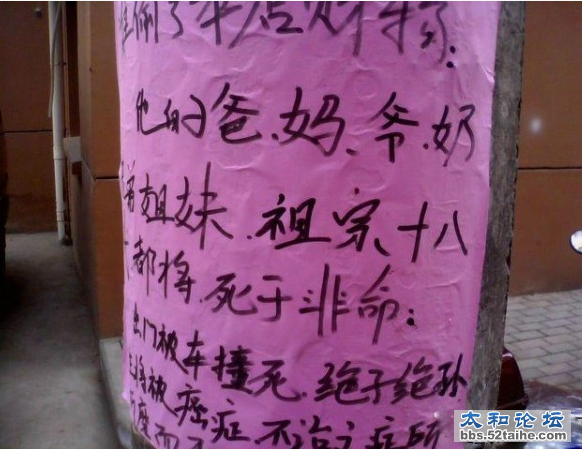 偷了本店财
他们爸、妈、爷、奶
姐妹、祖宗、十八
都将死于非命:
出门被车撞死、绝子绝孙
将被癌症、不治之症所
太和论坛
bbs.52taihe.com